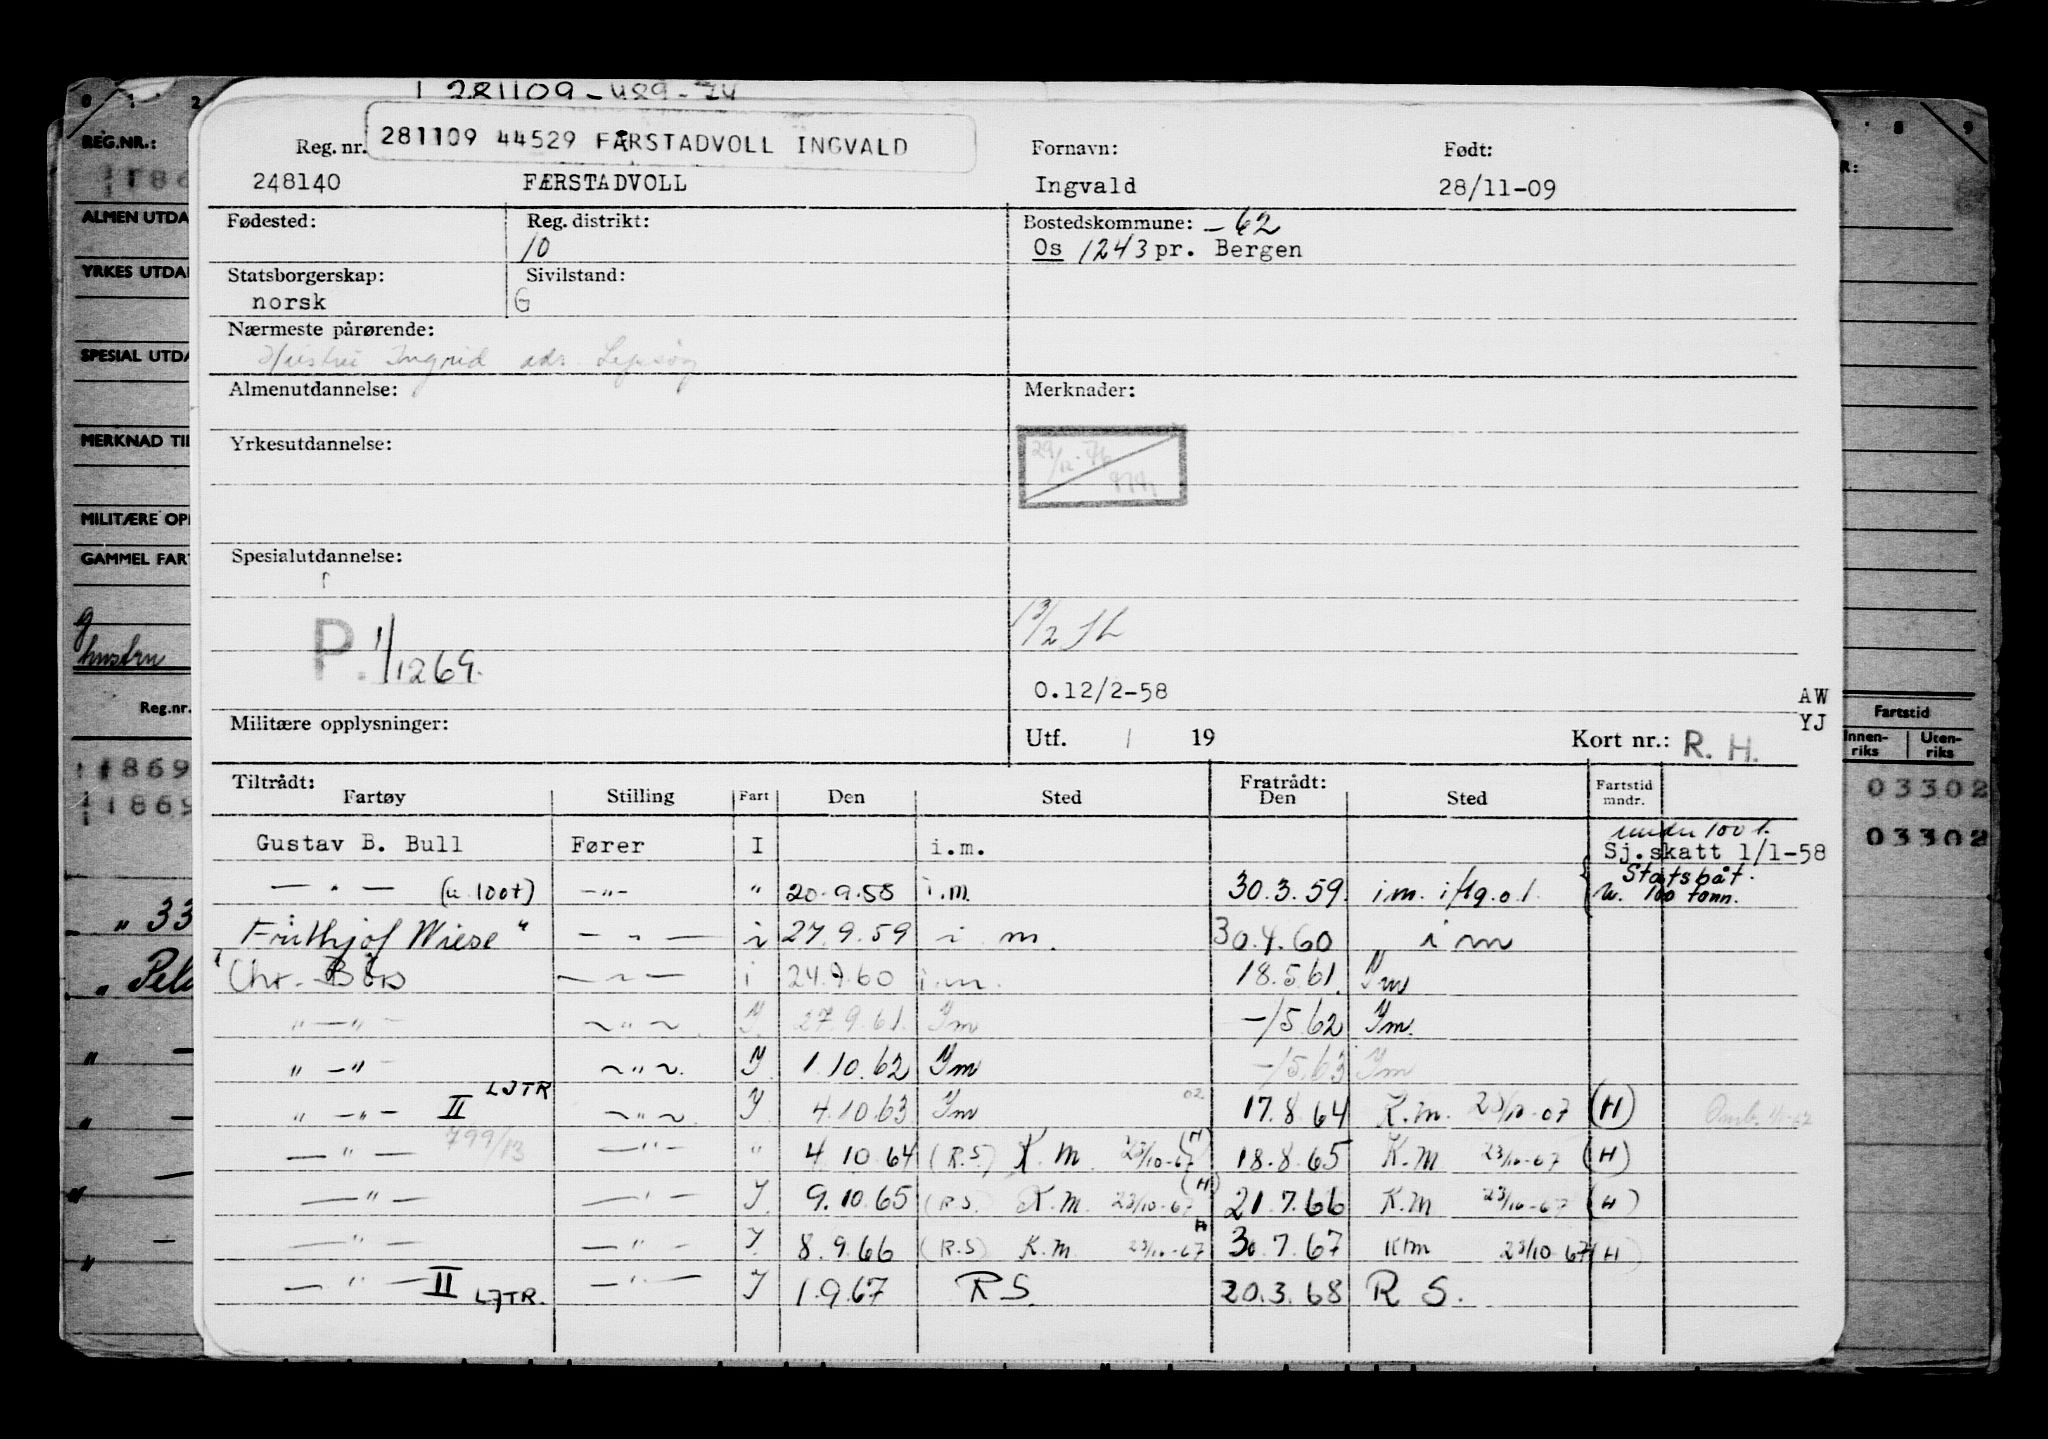 281109 - 489 - 74
281109 44529 FÆRSTADVOLL INGVALD
Reg. nr. Fornavn: Født:
248140 FÆRSTADVOLL Ingvald 28/11-09
Fødested: Reg. distrikt: Bostedskommune: -62
10 Os 1243 pr. Bergen
Statsborgerskap: Sivilstand:
norsk G
Nærmeste pårørende:
Hustru Ingrid adr. Lepsøy
Almenutdannelse: Merknader:
29/12-76
Yrkesutdannelse:
Spesialutdannelse:
P. 1/12 69.
0.12/2-58
AW
YJ
Militære opplysninger: Utf. / 19 Kort nr.: R. H.
Tiltrådt: Fratrådt:
Fartøy Stilling Fart Den Sted Den Sted Fartstid mndr.
under 100 t.
Gustav B. Bull Fører I i.m. Sj.skatt 1/1-58
— " — (u 100t) -"- " 20.9.58 i.m. 30.3.59. i.m. Statsbåt. u. 100 tonn.
Frithjof Wiese " — " — i 27.9.59 i m. 30.4.60 i m
Chr. Børs — " — i 24.9.60 i.m. 18.5.61. Im
" — " — ~ " ~ I. 27.9.61. Im -/5.62 Im.
" — " — ~ " ~. I 1.10.62 Im -/5.63 Im
" — " — II LJTR ~ " ~ I 4.10.63 Im 17.8.64 K.m. 23/10-67 (H)
— " — 799/13 — " — " 4.10.64 (R.S) K.m. 23/10-67 (H) 18.8.65 K.M 23/10-67 (H)
— " — — " — I. 9.10.65 (R.S. K.M. 23/10-67 (H) 21.7.66 K.M 23/10-67 (H)
— " — — " — I. 8.9.66 (R.S) K.m. 23/10-67 H 30.7.67 Km 23/10 67 (H)
— " — II LJTR. — " — I 1.9.67 R S. 20.3.68 R S.
0 1 2
REG.NR.:
ALMEN UTDA
YRKES UTDA
SPESIAL UTDA
MERKNAD TIL
MILITÆRE OP
GAMMEL FAR
g
hustru
Reg.nr.
1869
1869
" 33
8 9
R:
Fartstid
Innen-riks Uten-riks
03302
03302